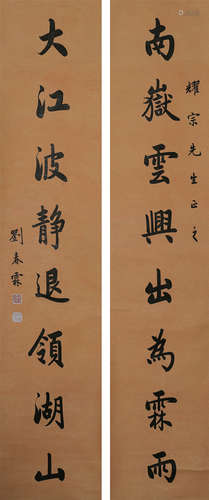 耀宗先生正之
南嶽雲興出為霖雨
大江波靜退領湖山
劉春霖